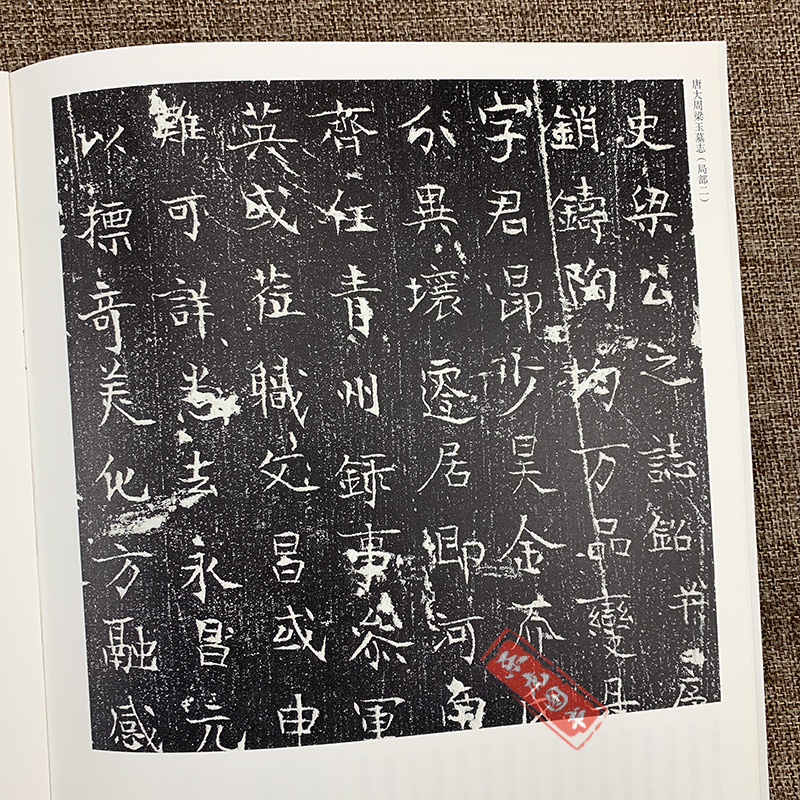 唐大周梁玉墓志（局部二）
史梁公之誌銘并序
銷鑄陶均万品變
字君昂少昊金
分異壤遷居即河南
齊任青州錄事參軍
英或蒞職父昌或申
難可詳去永昌元
以摽奇美化方融感